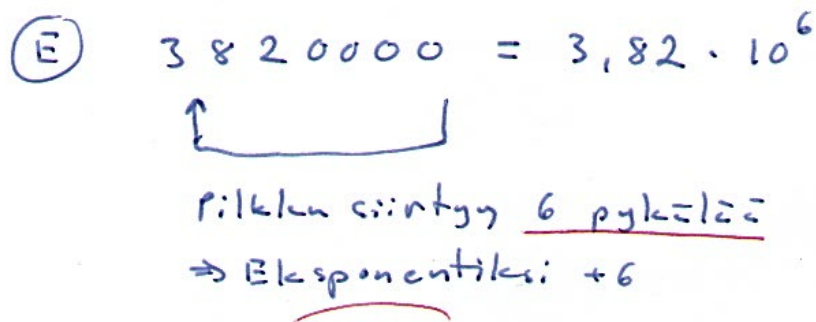 E 3820000 = 3,82 · 10⁶
Pilkku siirtyy 6 pykälää
⇒ Eksponentiksi +6